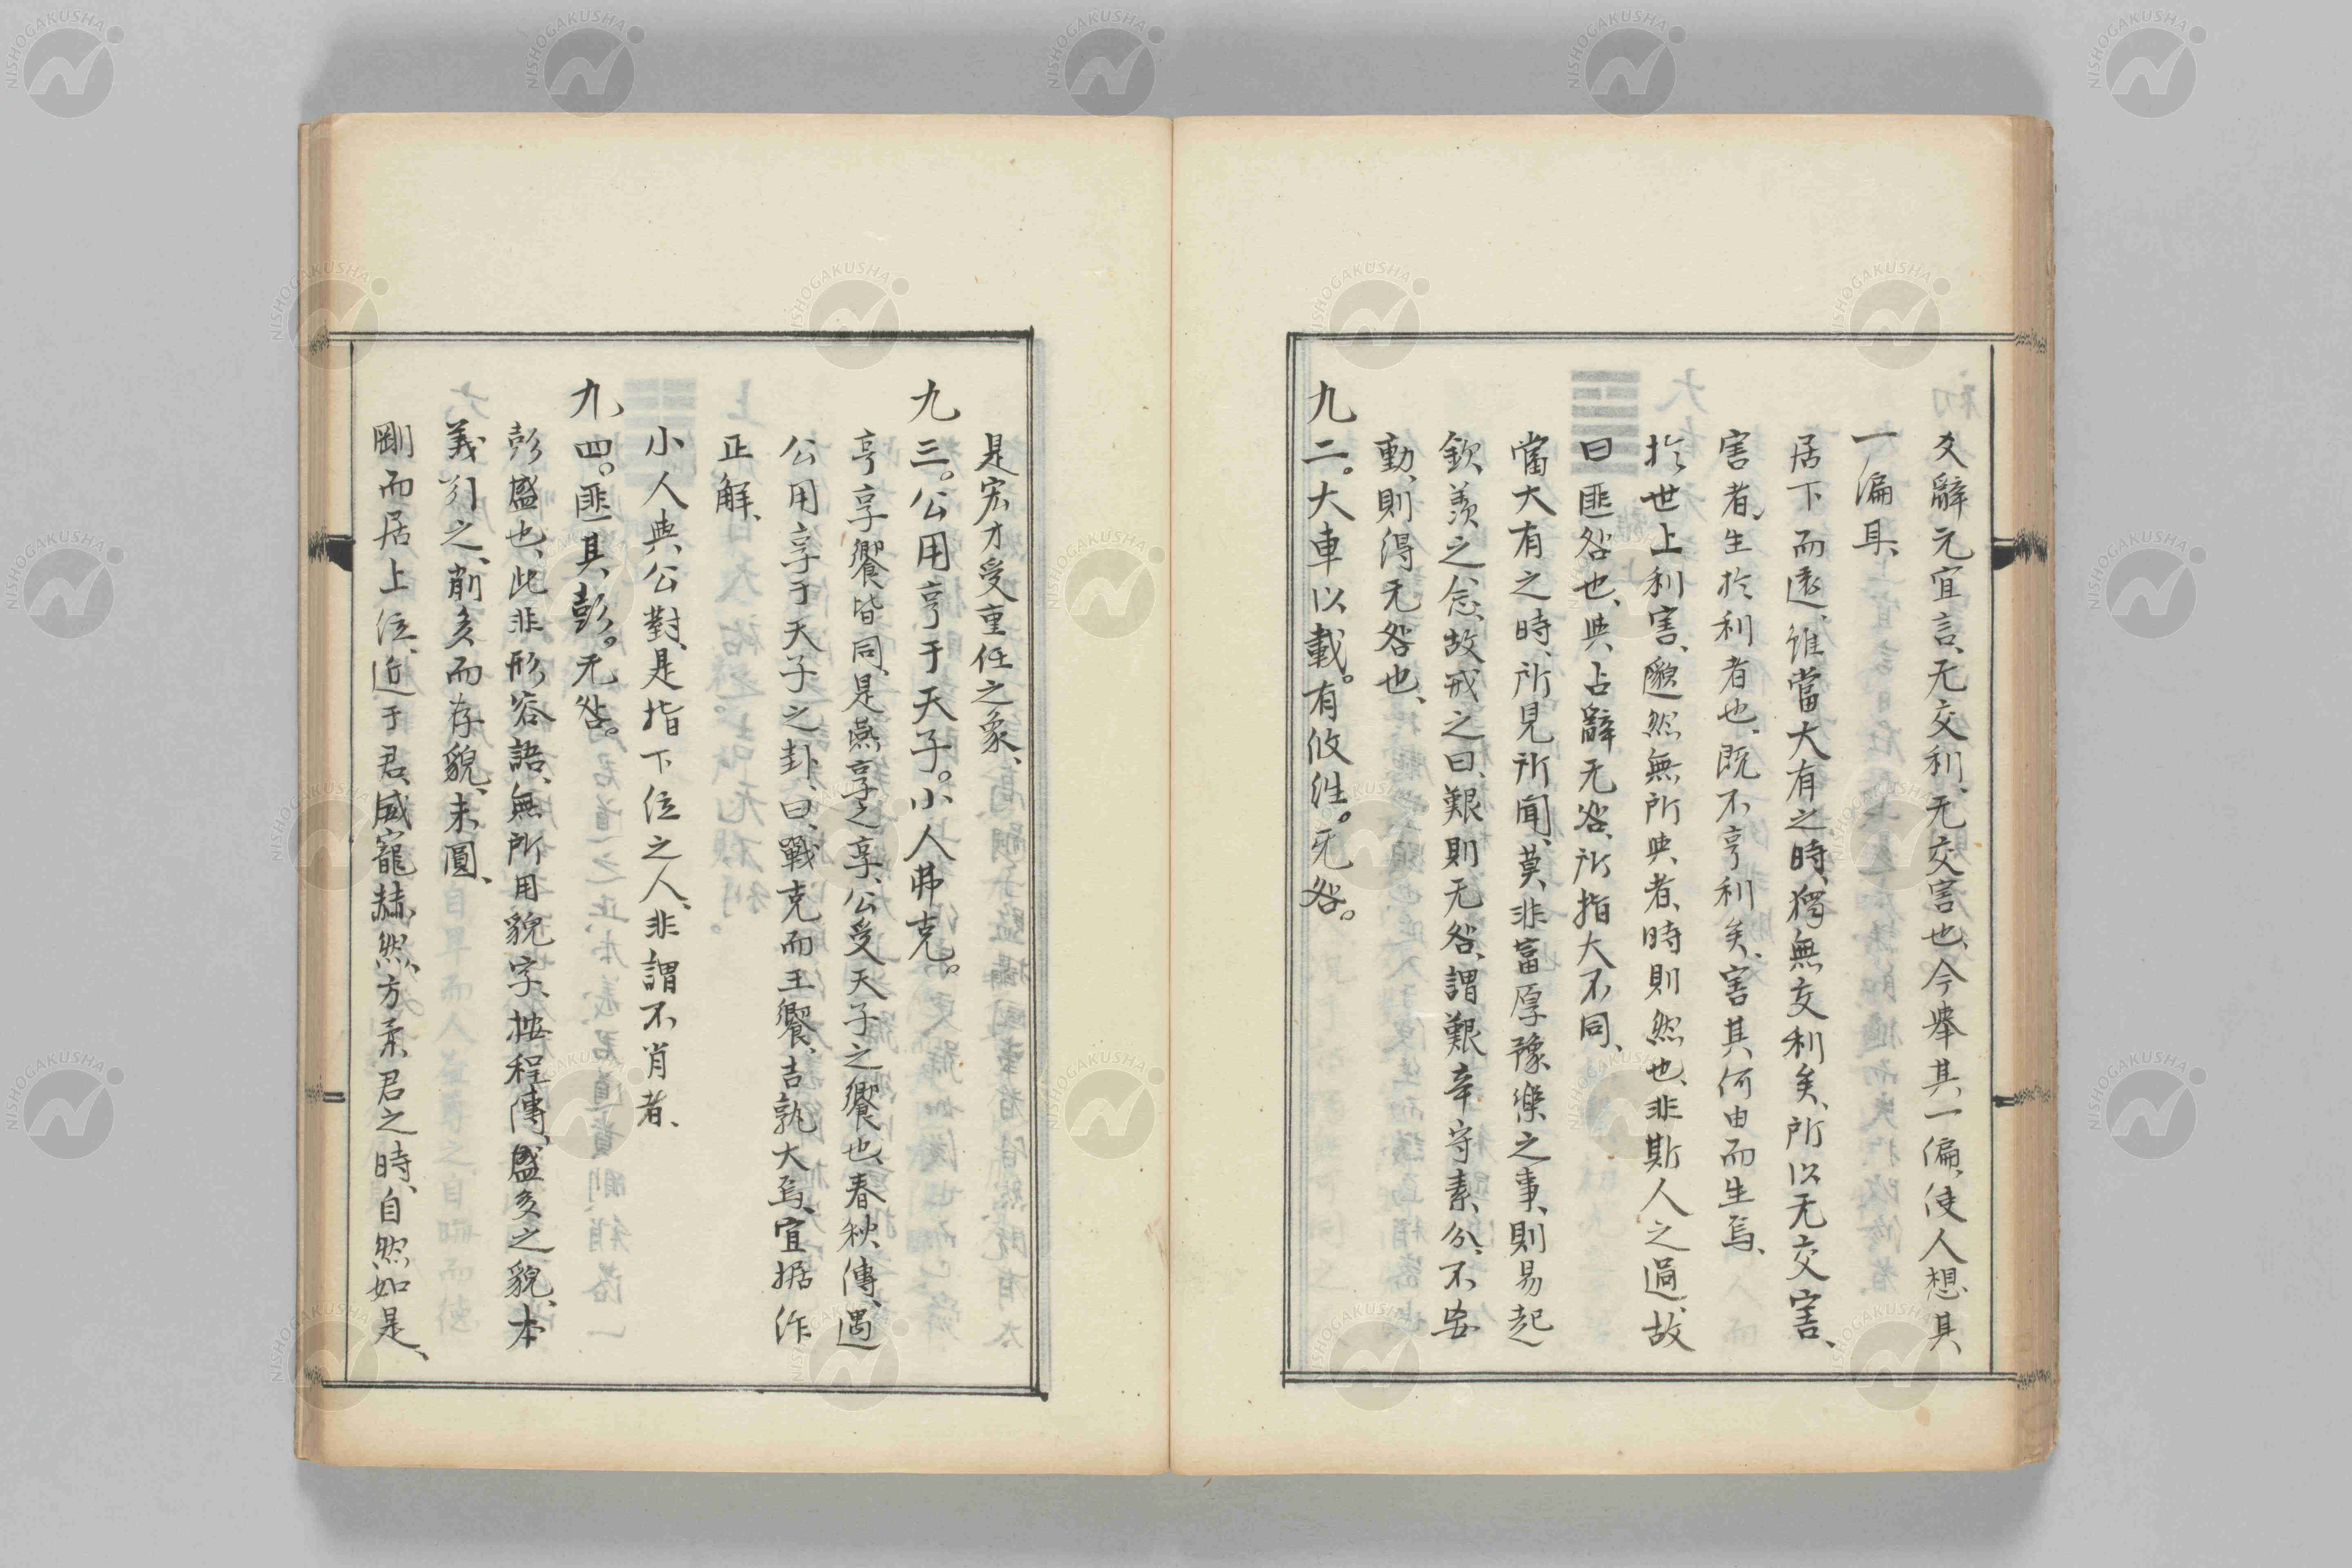 爻辭元宜言、无交利、无交害也、今擧其一偏、使人想其
一偏耳、
居下而遠、雖當大有之時、獨無交利矣、所以无交害、
害者、生於利者也、既不亨利矣、害其何由而生焉、
於世上利害、邈然無所與者、時則然也、非斯人之過、故
曰匪咎也、與占辭无咎、所指大不同、
當大有之時、所見所聞、莫非富厚豫樂之事、則易起
欽羨之念、故戒之曰、艱則无咎、謂艱辛守素分、不安
動、則得无咎也、
九二。大車以載。有攸往。无咎。
是宏才受重任之象、
九三。公用亨于天子。小人弗克。
亨享饗皆同、是燕享之享、公受天子之饗也、春秋傳、遇
公用享于天子之卦、曰、戰克而王饗、吉孰大焉、宜据作
正解、
小人與公對、是指下位之人、非謂不肖者、
九四。匪其彭。无咎。
彭盛也、此非形容語、無所用貌字、按程傳、盛多之貌、本
義引之、削多而存貌、未圓、
剛而居上位、近于君、威寵赫然、方柔君之時、自然如是、
NISHOGAKUSHA